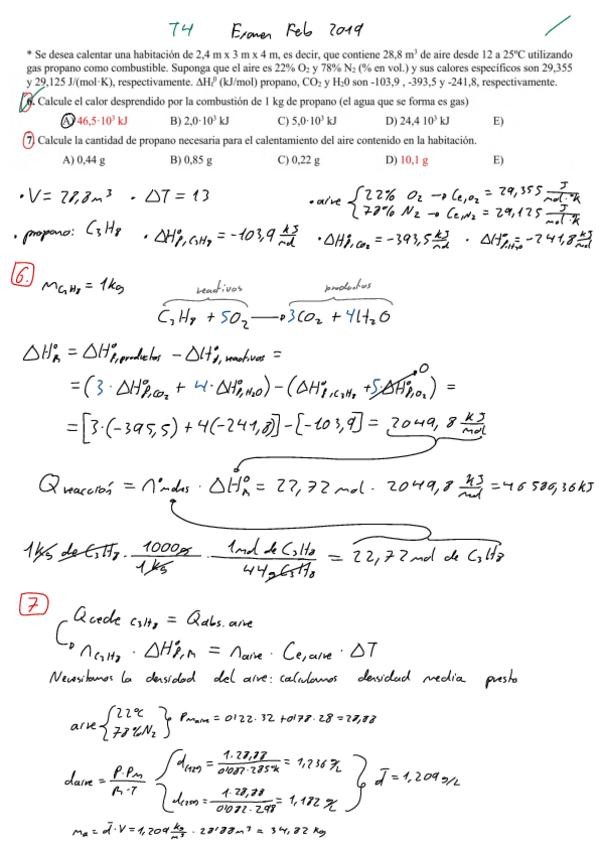 T4 Examen Feb 2019
* Se desea calentar una habitación de 2,4 m x 3 m x 4 m, es decir, que contiene 28,8 m³ de aire desde 12 a 25ºC utilizando
gas propano como combustible. Suponga que el aire es 22% O₂ y 78% N₂ (% en vol.) y sus calores específicos son 29,355
y 29,125 J/(mol·K), respectivamente. ΔHf⁰ (kJ/mol) propano, CO₂ y H₂0 son -103,9 , -393,5 y -241,8, respectivamente.
6. Calcule el calor desprendido por la combustión de 1 kg de propano (el agua que se forma es gas)
A) 46,5·10³ kJ B) 2,0·10³ kJ C) 5,0·10³ kJ D) 24,4 10³ kJ E)
7. Calcule la cantidad de propano necesaria para el calentamiento del aire contenido en la habitación.
A) 0,44 g B) 0,85 g C) 0,22 g D) 10,1 g E)
· V = 28,8 m³ · ΔT = 13 · aire { 22% O₂ → Ce,O₂ = 29,355 J/mol·K
78% N₂ → Ce,N₂ = 29,125 J/mol·K
· propano: C₃H₈ · ΔH°f,C₃H₈ = -103,9 kJ/mol · ΔH°f,CO₂ = -393,5 kJ/mol · ΔH°f,H₂O = -241,8 kJ/mol
6. m C₃H₈ = 1kg
reactivos productos
C₃H₈ + 5O₂ → 3CO₂ + 4H₂O
ΔH°R = ΔH°f,productos - ΔH°f,reactivos =
= (3 · ΔH°f,CO₂ + 4 · ΔH°f,H₂O) - (ΔH°f,C₃H₈ + 5·ΔH°f,O₂) = 0
= [3·(-395,5) + 4(-241,8)] - [-103,9] = 2049,8 kJ/mol
Q reacción = nº moles · ΔH°R = 22,72 mol · 2049,8 kJ/mol = 46586,36 kJ
1kg de C₃H₈ · 1000g/1kg · 1mol de C₃H₈/44g C₃H₈ = 22,72 mol de C₃H₈
7 Qcede C₃H₈ = Qabs. aire
n C₃H₈ · ΔH°f,R = n aire · Ce,aire · ΔT
Necesitamos la densidad del aire: calculamos densidad media presto
aire { 22% 78% N₂ } Pmaire = 0'22 · 32 + 0'78 · 28 = 28,88
daire = P·Pm/R·T { d(12º) = 1·28,88/0'082·285ºK = 1,236 g/L
d(25º) = 1·28,88/0'082·298 = 1,182 g/L } d̄ = 1,209 g/L
ma = d̄·V = 1,209 kg/m³ · 28'88 m³ = 34,82 kg